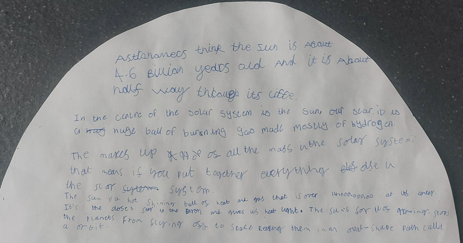 Astronamers think the sun is About
4.6 Billion years old And it is About
half way through its life
In the centre of the solar system is the Sun, our star it is
a huge ball of burnning gas made mostly of hydrogen
The makes up of all the mass in the solar system,
that means if you put together everything else in
the solar system
The Sun is hot shining ball of hot gas that is over at its
It's the closest star to the Earth and gives us hot light. The Sun's
the planets from flying off to space keeping them in an path called
a orbit